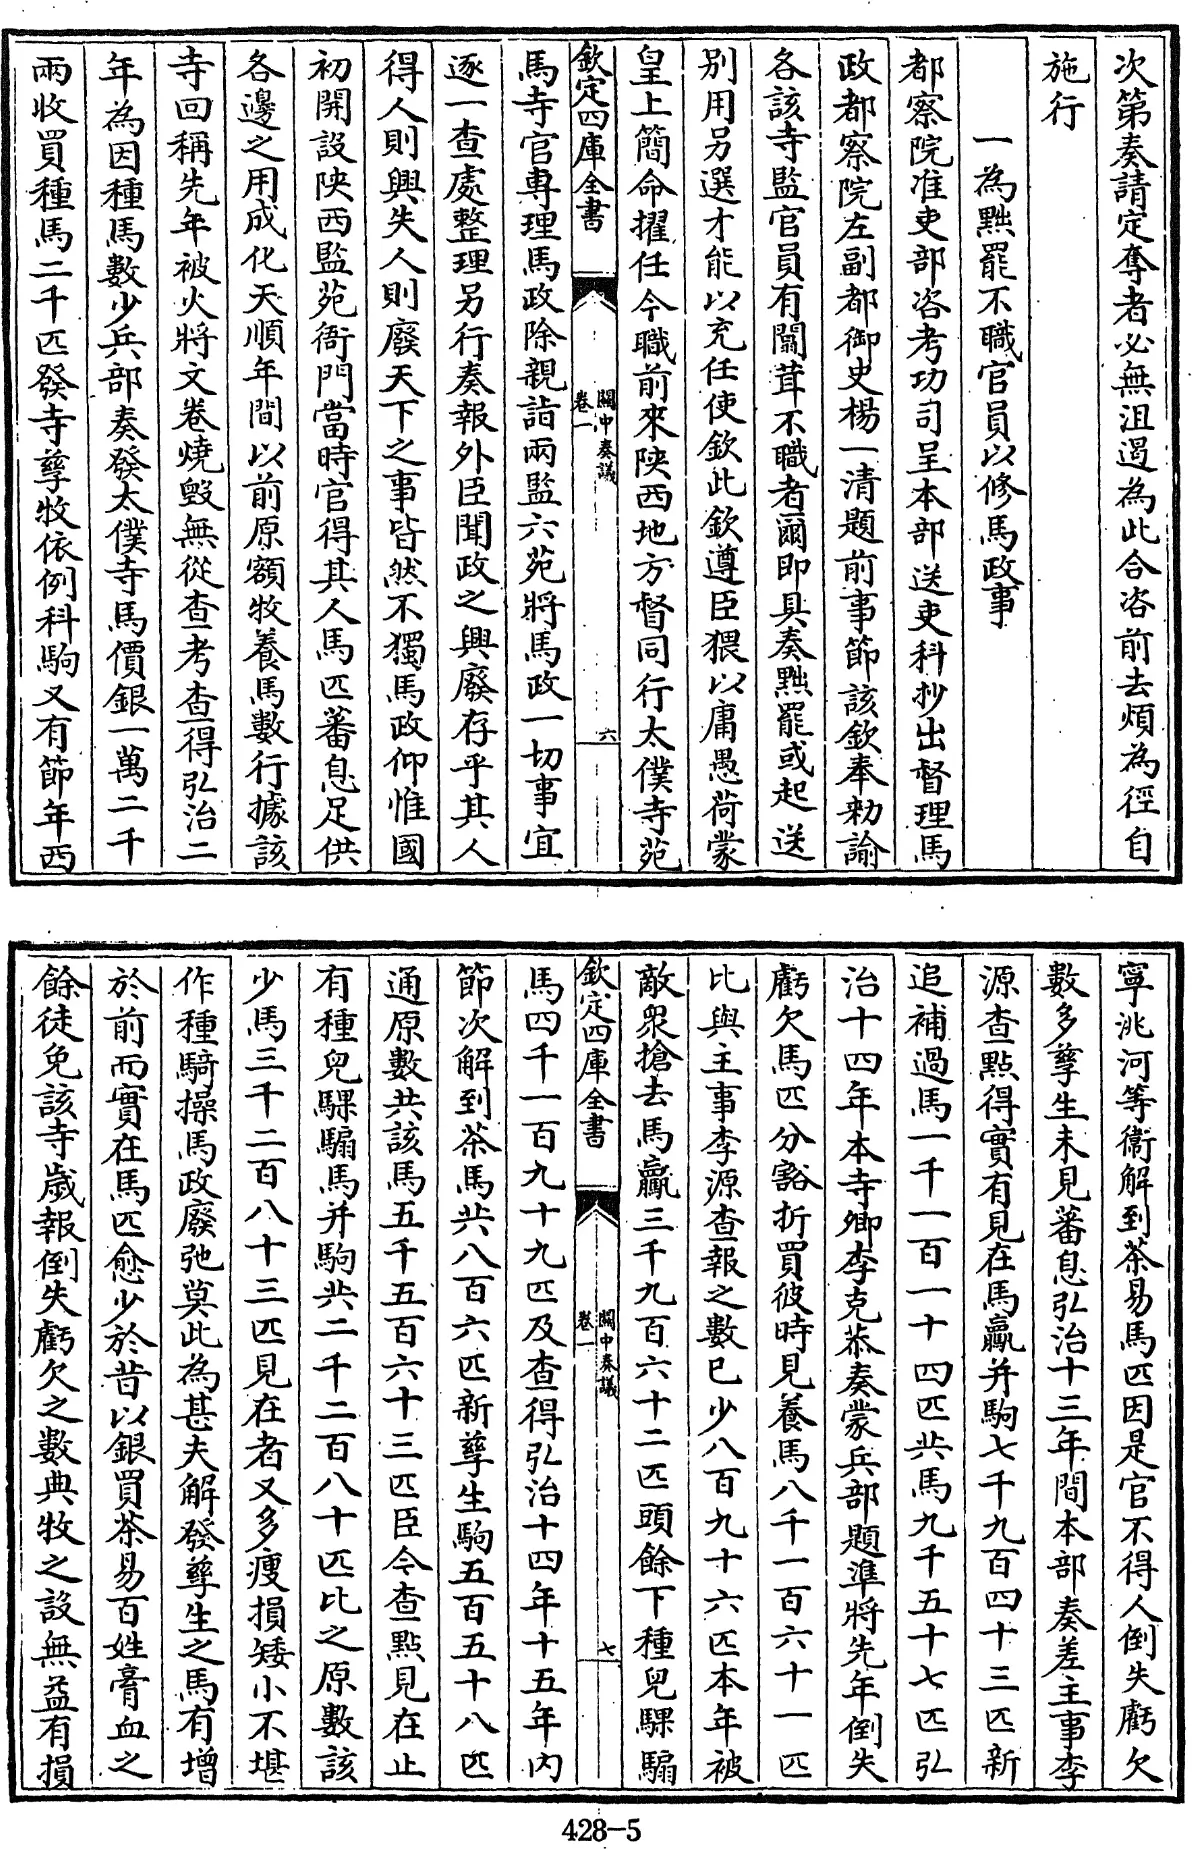 次第奏請定奪者必無沮遏為此合咨前去煩為徑自
施行
一為黜罷不職官員以修馬政事
都察院准吏部咨考功司呈本部送吏科抄出督理馬
政都察院左副都御史楊一清題前事節該欽奉勅諭
各該寺監官員有闒茸不職者爾即具奏黜罷或起送
別用另選才能以充任使欽此欽遵臣猥以庸愚荷蒙
皇上簡命擢任今職前來陜西地方督同行太僕寺苑
欽定四庫全書
關中奏議
卷一
六
馬寺官專理馬政除親詣兩監六苑將馬政一切事宜
逐一查處整理另行奏報外臣聞政之興廢存乎其人
得人則興失人則廢天下之事皆然不獨馬政仰惟國
初開設陜西監苑衙門當時官得其人馬匹蕃息足供
各邊之用成化天順年間以前原額牧養馬數行據該
寺回稱先年被火將文卷燒毀無從查考查得弘治二
年為因種馬數少兵部奏發太僕寺馬價銀一萬二千
兩收買種馬二千匹發寺孳牧依例科駒又有節年西
寧洮河等衞解到茶易馬匹因是官不得人倒失虧欠
數多孳生未見蕃息弘治十三年間本部奏差主事李
源查點得實有見在馬驘并駒七千九百四十三匹新
追補過馬一千一百一十四匹共馬九千五十七匹弘
治十四年本寺卿李克恭奏蒙兵部題準將先年倒失
虧欠馬匹分豁折買彼時見養馬八千一百六十一匹
比與主事李源查報之數已少八百九十六匹本年被
敵衆搶去馬驘三千九百六十二匹頭餘下種兒騍騸
欽定四庫全書
關中奏議
卷一
七
馬四千一百九十九匹及查得弘治十四年十五年內
節次解到茶馬共八百六匹新孳生駒五百五十八匹
通原數共該馬五千五百六十三匹臣今查點見在止
有種兒騍騸馬并駒共二千二百八十匹比之原數該
少馬三千二百八十三匹見在者又多瘦損矮小不堪
作種騎操馬政廢弛莫此為甚夫解發孳生之馬有增
於前而實在馬匹愈少於昔以銀買茶易百姓膏血之
餘徒免該寺歲報倒失虧欠之數典牧之設無益有損
428-5